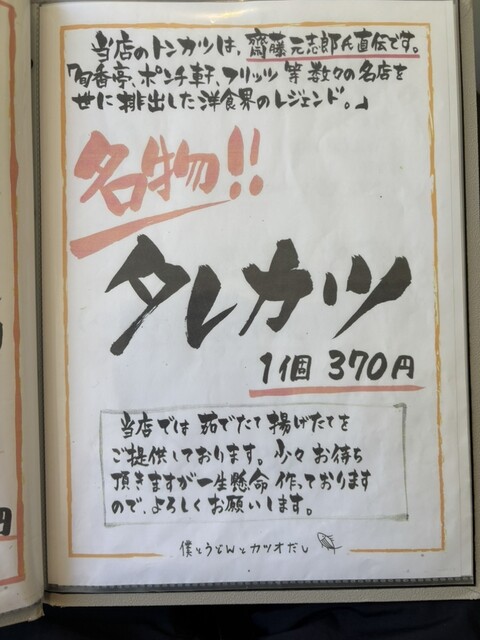 当店のトンカツは、齋藤元志郎氏直伝です。
「旬香亭、ポンチ軒、フリッツ等数々の名店を
世に排出した洋食界のレジェンド。」
名物!!
タレカツ
1個 370円
当店では 茹でたて 揚げたてを
ご提供しております。少々お待ち
頂きますが一生懸命 作っております
ので、よろしくお願いします。
僕とうどんとカツオだし
円